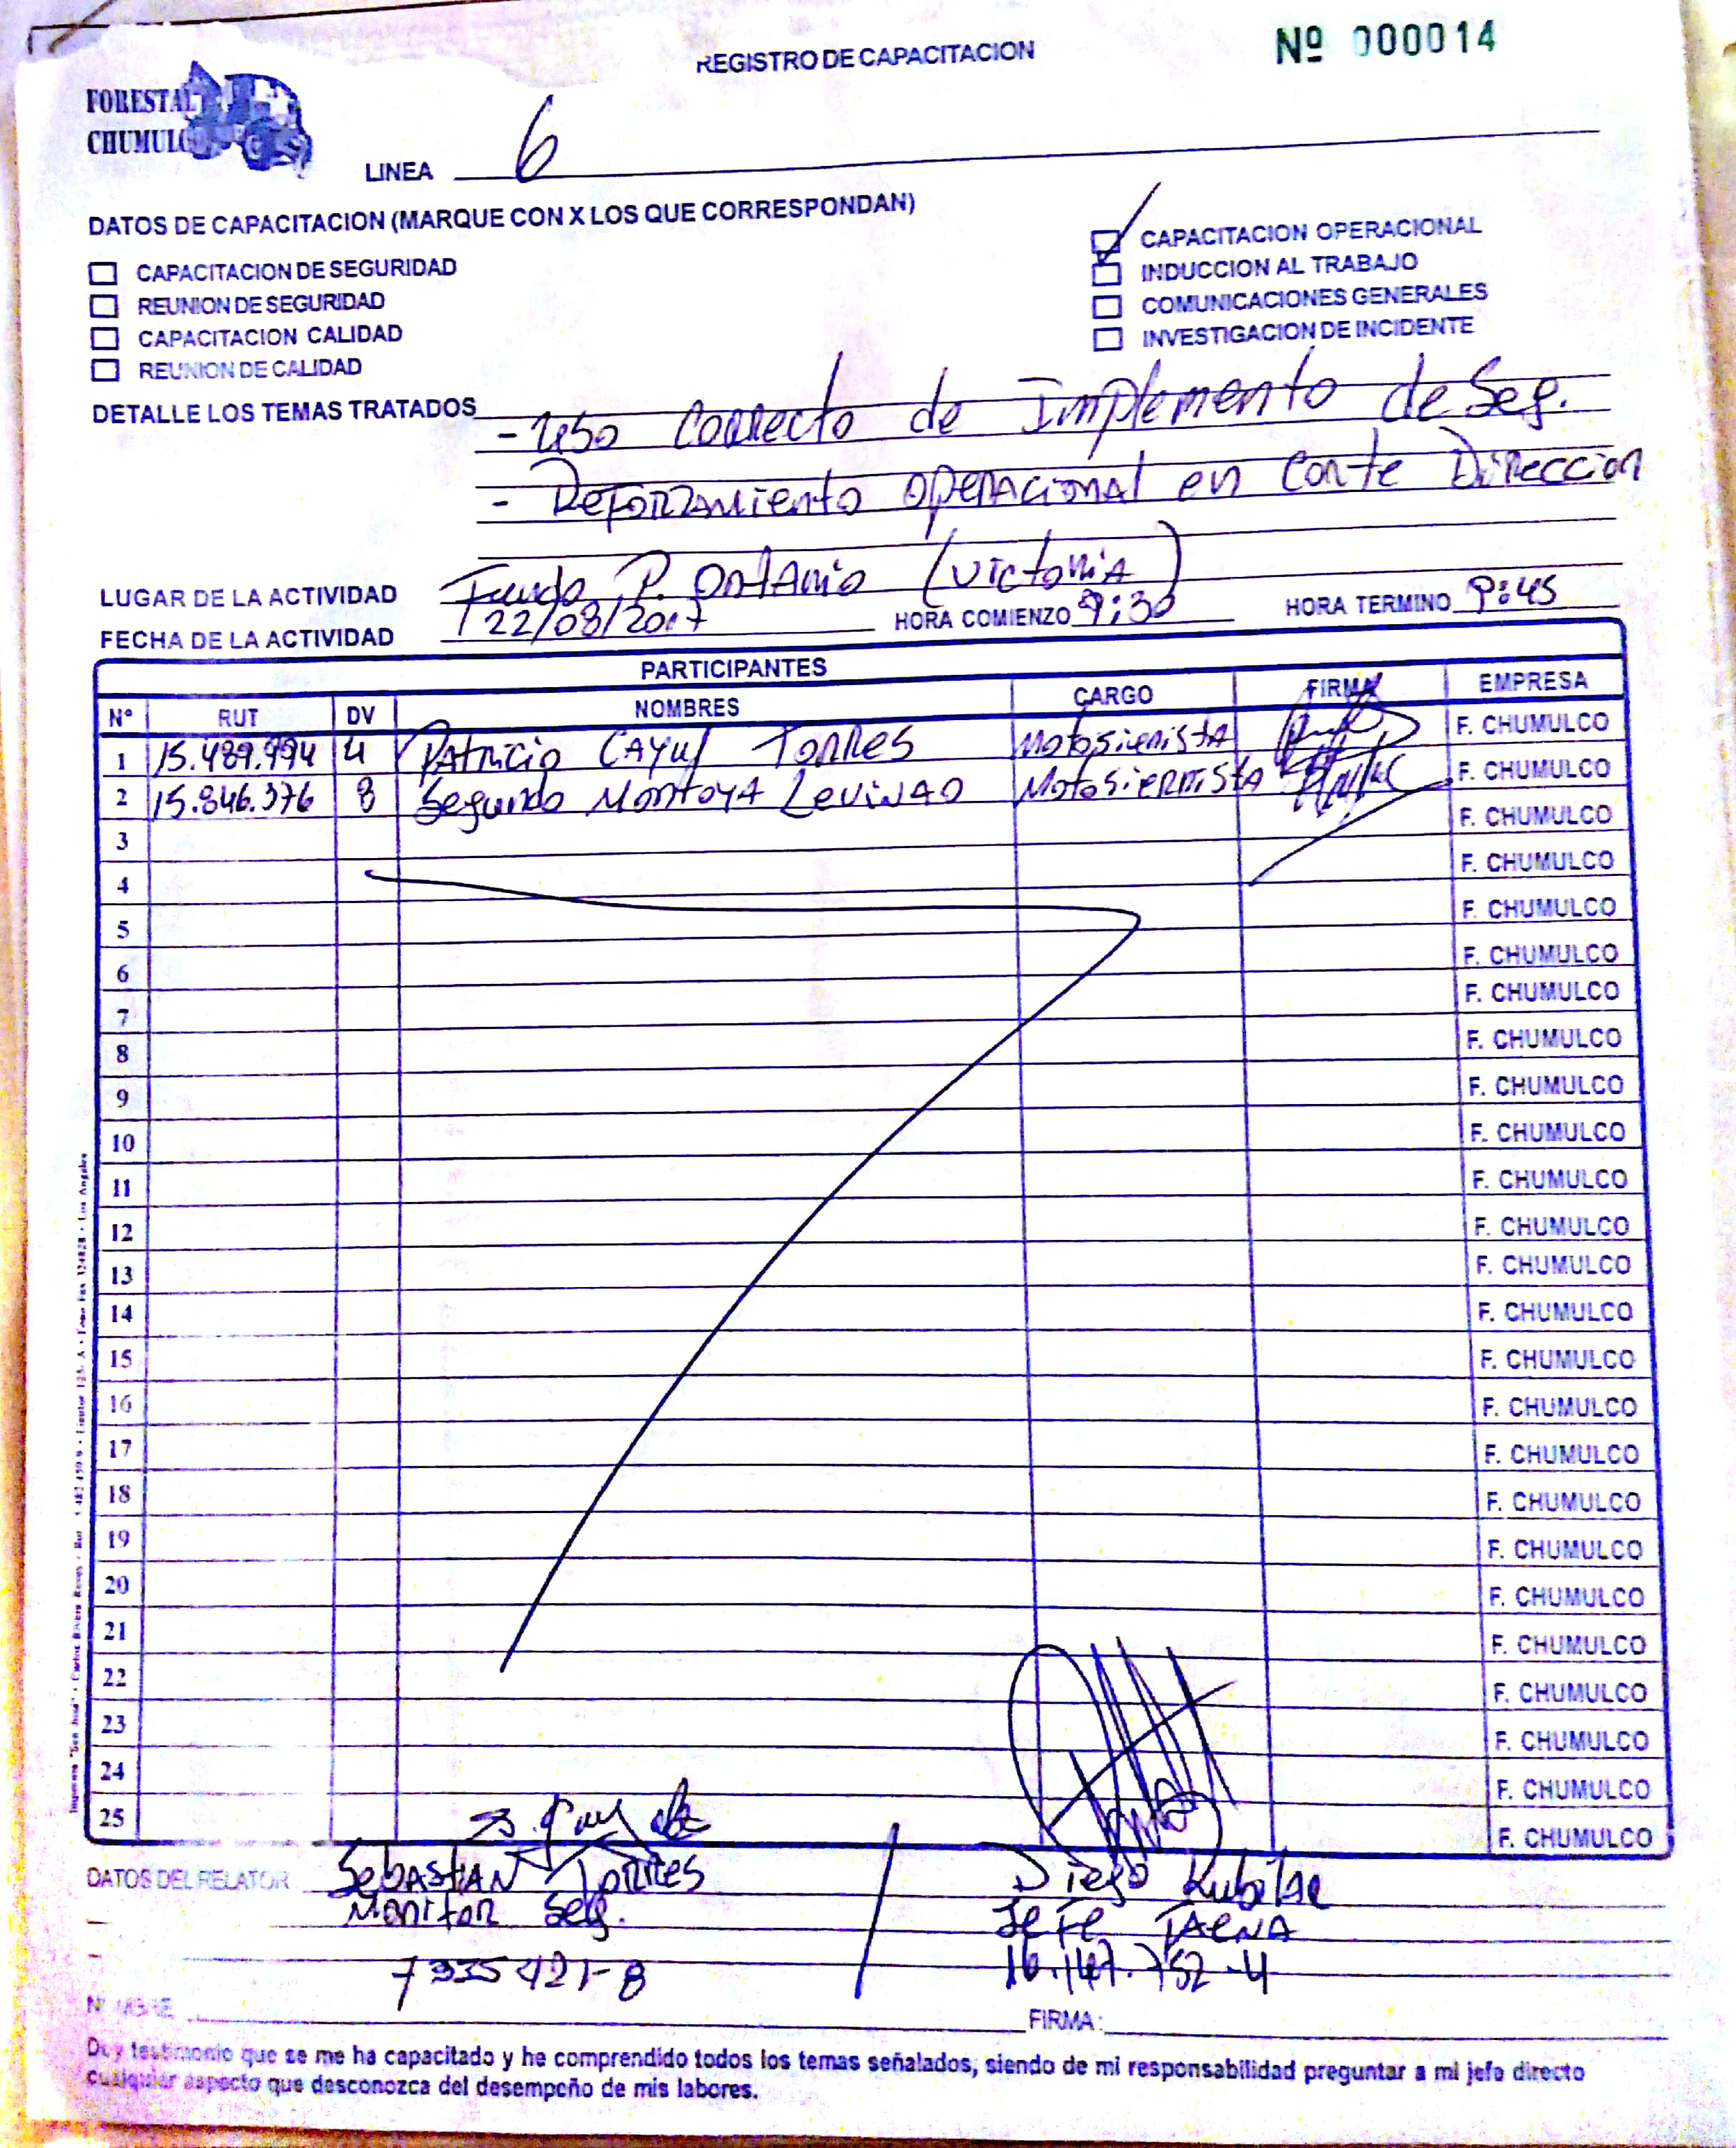 REGISTRO DE CAPACITACION
Nº 000014
FORESTAL
CHUMULCO
LINEA 6
DATOS DE CAPACITACION (MARQUE CON X LOS QUE CORRESPONDAN)
CAPACITACION DE SEGURIDAD
REUNION DE SEGURIDAD
CAPACITACION CALIDAD
REUNION DE CALIDAD
CAPACITACION OPERACIONAL
INDUCCION AL TRABAJO
COMUNICACIONES GENERALES
INVESTIGACION DE INCIDENTE
DETALLE LOS TEMAS TRATADOS
- Uso Correcto de Implemento de Seg.
- Reforzamiento operacional en Corte Direccion
LUGAR DE LA ACTIVIDAD Fundo P. Ontario (Victoria)
FECHA DE LA ACTIVIDAD 22/08/2017 HORA COMIENZO 9:30 HORA TERMINO 9:45
PARTICIPANTES
Nº RUT DV NOMBRES CARGO FIRMA EMPRESA
1 15.489.994 4 Patricio Cayul Torres Motosierrista F. CHUMULCO
2 15.846.376 8 Segundo Montoya Levinao Motosierrista F. CHUMULCO
3 F. CHUMULCO
4 F. CHUMULCO
5 F. CHUMULCO
6 F. CHUMULCO
7 F. CHUMULCO
8 F. CHUMULCO
9 F. CHUMULCO
10 F. CHUMULCO
11 F. CHUMULCO
12 F. CHUMULCO
13 F. CHUMULCO
14 F. CHUMULCO
15 F. CHUMULCO
16 F. CHUMULCO
17 F. CHUMULCO
18 F. CHUMULCO
19 F. CHUMULCO
20 F. CHUMULCO
21 F. CHUMULCO
22 F. CHUMULCO
23 F. CHUMULCO
24 F. CHUMULCO
25 F. CHUMULCO
DATOS DEL RELATOR Sebastian Torres Diego Kubilae
Monitor Seg. Jefe Faena
7335421-8 16.147.752-4
NOMBRE FIRMA:
Doy testimonio que se me ha capacitado y he comprendido todos los temas señalados, siendo de mi responsabilidad preguntar a mi jefe directo
cualquier aspecto que desconozca del desempeño de mis labores.